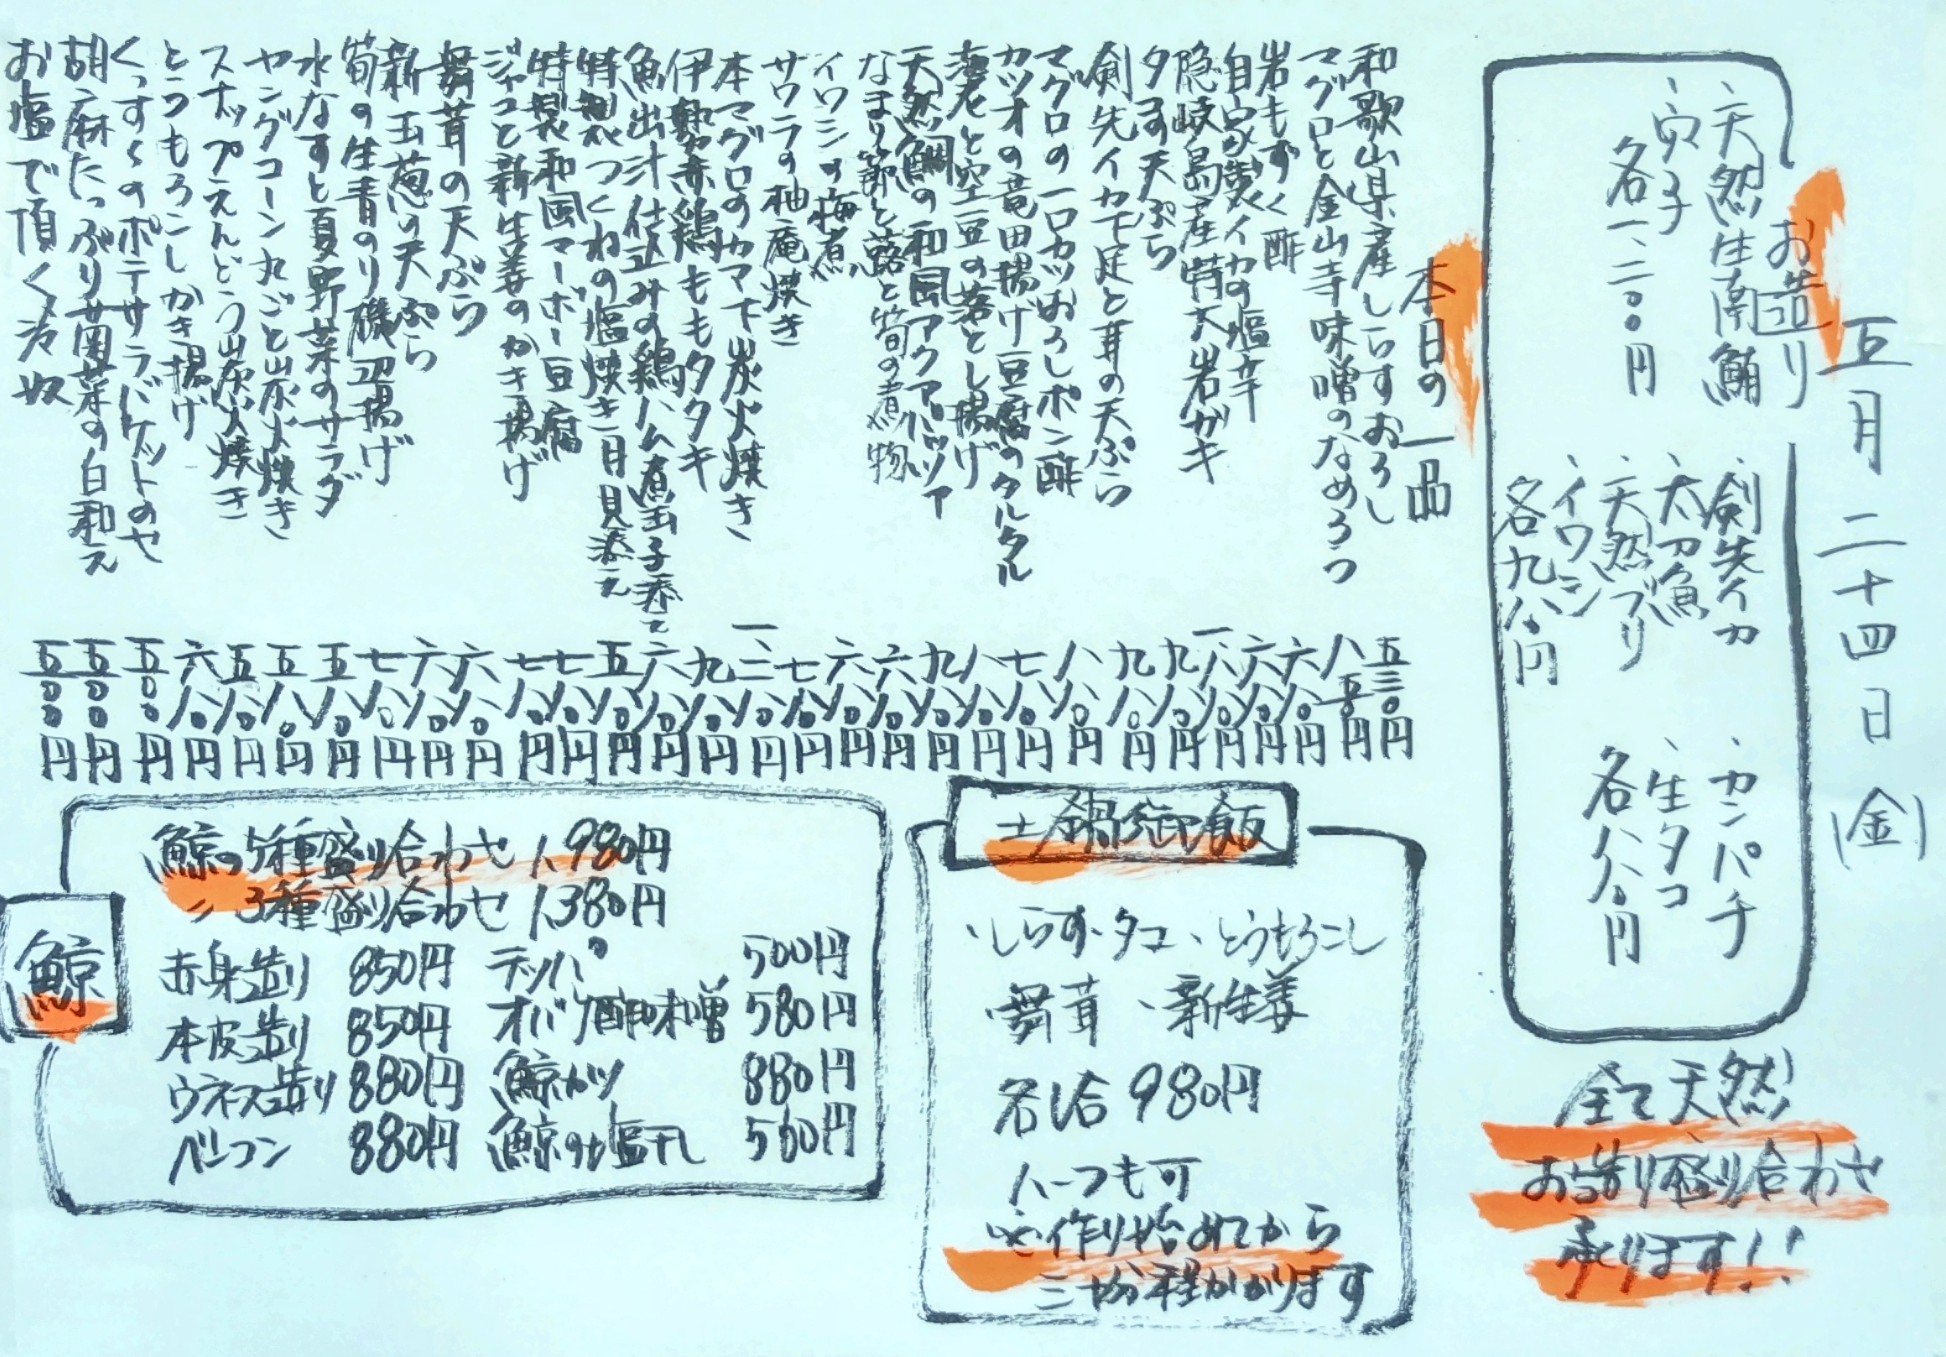 五月二十四日(金)
お造り
、天然生南鮪
、穴子
各一、二〇〇円
、剣先イカ
、太刀魚
、天然ブリ
、イワシ
各九八〇円
、カンパチ
、生タコ
各八八〇円
全て天然
お造り盛り合わせ
承ります!!
本日の一品
和歌山県産しらすおろし 五三〇円
マグロと金山寺味噌のなめろう 八五〇円
岩もずく酢 六八〇円
自家製イカの塩辛 六八〇円
隠岐島産特大岩ガキ 一、八八〇円
タコ天ぷら 九八〇円
剣先イカ下足と茸の天ぷら 九八〇円
マグロの一口カツおろしポン酢 八八〇円
カツオの竜田揚げ豆腐のタルタル 七八〇円
海老と空豆の落とし揚げ 八八〇円
天然鯛の和風アクアパッツァ 九八〇円
なまり節と蕗と筍の煮物 六八〇円
イワシの梅煮 六八〇円
サワラの柚庵焼き 七八〇円
本マグロのカマ下炭火焼き 一、二八〇円
伊勢赤鶏ももタタキ 九八〇円
魚出汁仕込みの鶏ハム煮玉子添え 六八〇円
特製つくねの塩焼き月見添え 五八〇円
特製和風マーボー豆腐 七八〇円
ジャコと新生姜のかき揚げ 七八〇円
舞茸の天ぷら 六八〇円
新玉葱の天ぷら 六八〇円
筍の生青のり磯辺揚げ 七八〇円
水なすと夏野菜のサラダ 五八〇円
ヤングコーン丸ごと炭火焼き 五八〇円
スナップえんどう炭火焼き 五八〇円
とうもろこしかき揚げ 六八〇円
くっすんのポテサラバケットのせ 五〇〇円
胡麻たっぷり菌菜の白和え 五〇〇円
お塩で頂く冷奴 五〇〇円
土鍋御飯
・しらす・タコ、とうもろこし
・舞茸 ・新生姜
各1合 980円
ハーフも可
※作り始めてから
三十分程かかります
鯨
鯨の5種盛り合わせ 1,980円
〃 3種盛り合わせ 1,380円
赤身造り 850円 テッパ 500円
本皮造り 850円 オバケ酢味噌 580円
ウネス造り 880円 鯨カツ 880円
ベーコン 880円 鯨のも塩干し 560円